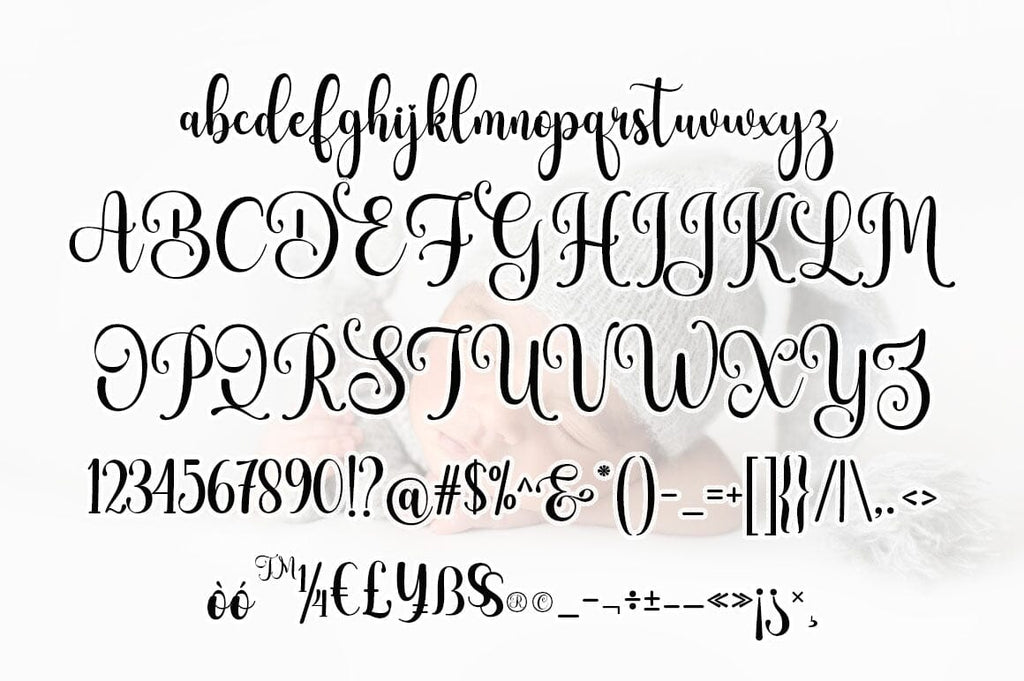 abcdefghijklmnopqrstuvwxyz
ABCDEFGHIJKLM
OPQRSTUVWXYZ
1234567890!?@#$%^&*()-_=+[]{}/|\,.<>
òó™¼€£¥ß§®©_-¬÷±——«»¡¿×¸